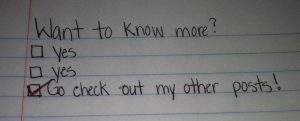 Want to know more?
☐ yes
☐ yes
☑ Go check out my other posts!